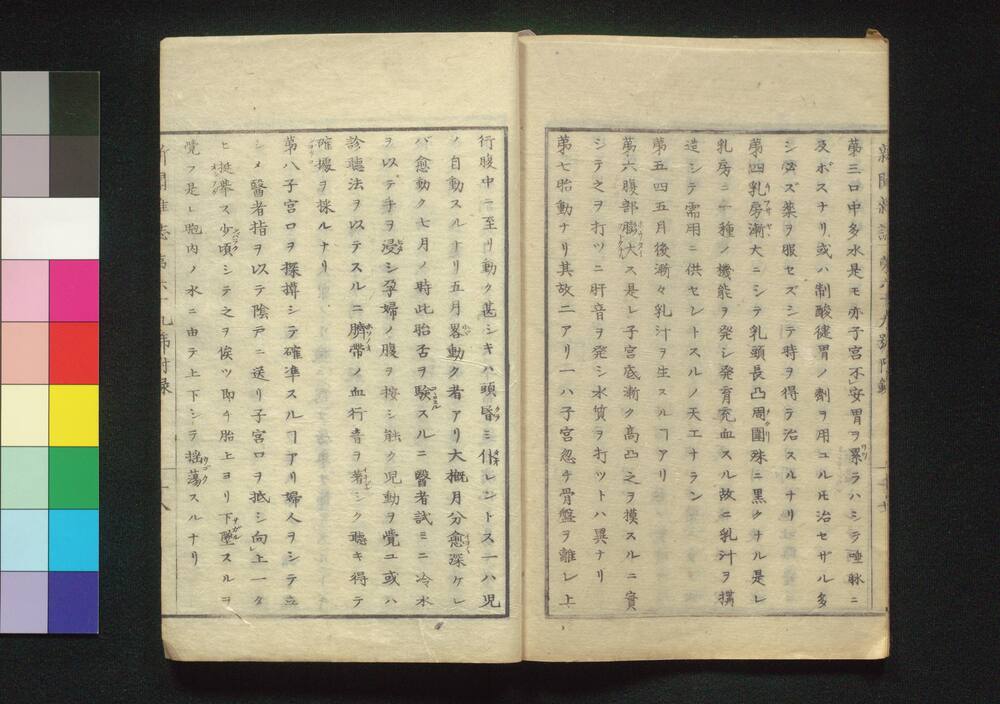 第三口中多水是モ亦子宮不安胃ヲ累ラハシテ唾脉ニ
及ボスナリ或ハ制酸健胃ノ劑ヲ用ユルモ治セザル多
シ必ズ薬ヲ服セズシテ時ヲ得テ治スルナリ
第四乳房漸大ニシテ乳頭長凸周圍殊ニ黒クナル是レ
乳房ニ一種ノ機能ヲ発シ発育充血スル故ニ乳汁ヲ搆
造シテ需用ニ供セントスルノ天工ナラン
第五四五月後漸々乳汁ヲ生スルヿアリ
第六腹部膨大ス是レ子宮底漸ク高凸之ヲ摸スルニ實
シテ之ヲ打ツニ肝音ヲ発シ水質ヲ打ツトハ異ナリ
第七胎動ナリ其故二アリ一ハ子宮忽チ骨盤ヲ離レ上
行腹中ニ至リ動ク甚シキハ頭昏ミ仆レントス一ハ児
ノ自動スルナリ五月畧動ク者アリ大概月分愈深ケレ
バ愈動ク七月ノ時此胎否ヲ験スルニ醫者試ミニ冷水
ヲ以テ手ヲ浸シ孕婦ノ腹ヲ按シ能ク児動ヲ覺ユ或ハ
診聴法ヲ以テスルニ臍帶ノ血行音ヲ著シク聴キ得テ
確據ヲ採ルナリ
第八子宮口ヲ探撙シテ確準スルヿアリ婦人ヲシテ立
シメ醫者指ヲ以テ陰戸ニ送リ子宮口ヲ抵シ向上一タ
ヒ挺舉ス少頃シテ之ヲ俟ツ即チ胎上ヨリ下墜スルヲ
覺フ是レ胞内ノ水ニ由テ上下シテ揺蕩スルナリ
新聞雑誌 第六十九號附録